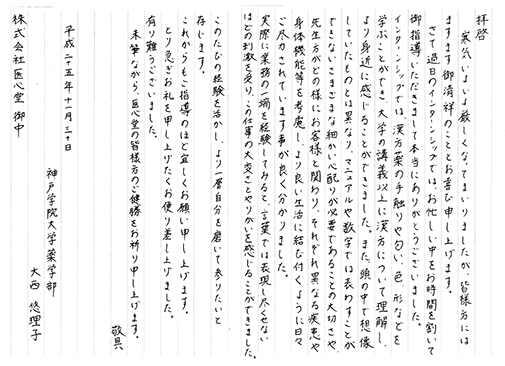 拝啓
寒気いよいよ厳しくなってまいりましたが、皆様方には
ますます御清祥のこととお喜び申し上げます。
さて過日のインターンシップでは、お忙しい中をお時間を割いて
御指導いただきまして本当にありがとうございました。
インターンシップでは、漢方薬の手触りや匂い、色、形などを
学ぶことができ、大学の講義以上に漢方について理解し、
より身近に感じることができました。また、頭の中で想像
していたものとは異なり、マニュアルや数字では表わすことが
できないさまざまな細かい心配りが必要であることの大切さや
先生方がどの様にお客様と関わり、それぞれ異なる疾患や
身体機能等を考慮し、より良い生活に結び付くように日々
ご尽力されています事が良く分かりました。
実際に業務の一端を経験してみると、言葉では表現し尽くせない
ほどの刺激を受け、この仕事の大変さとやりがいを感じることができました。
このたびの経験を活かし、より一層自分を磨いて参りたいと
存じます。
これからもご指導のほど宜しくお願い申し上げます。
とり急ぎお礼を申し上げたくお便り差し上げました。
有り難うございました。
末筆ながら、医心堂の皆様方のご健勝をお祈り申し上げます。
敬具
平成二十五年十一月三十日
神戸学院大学薬学部
大西 悠理子
株式会社医心堂 御中